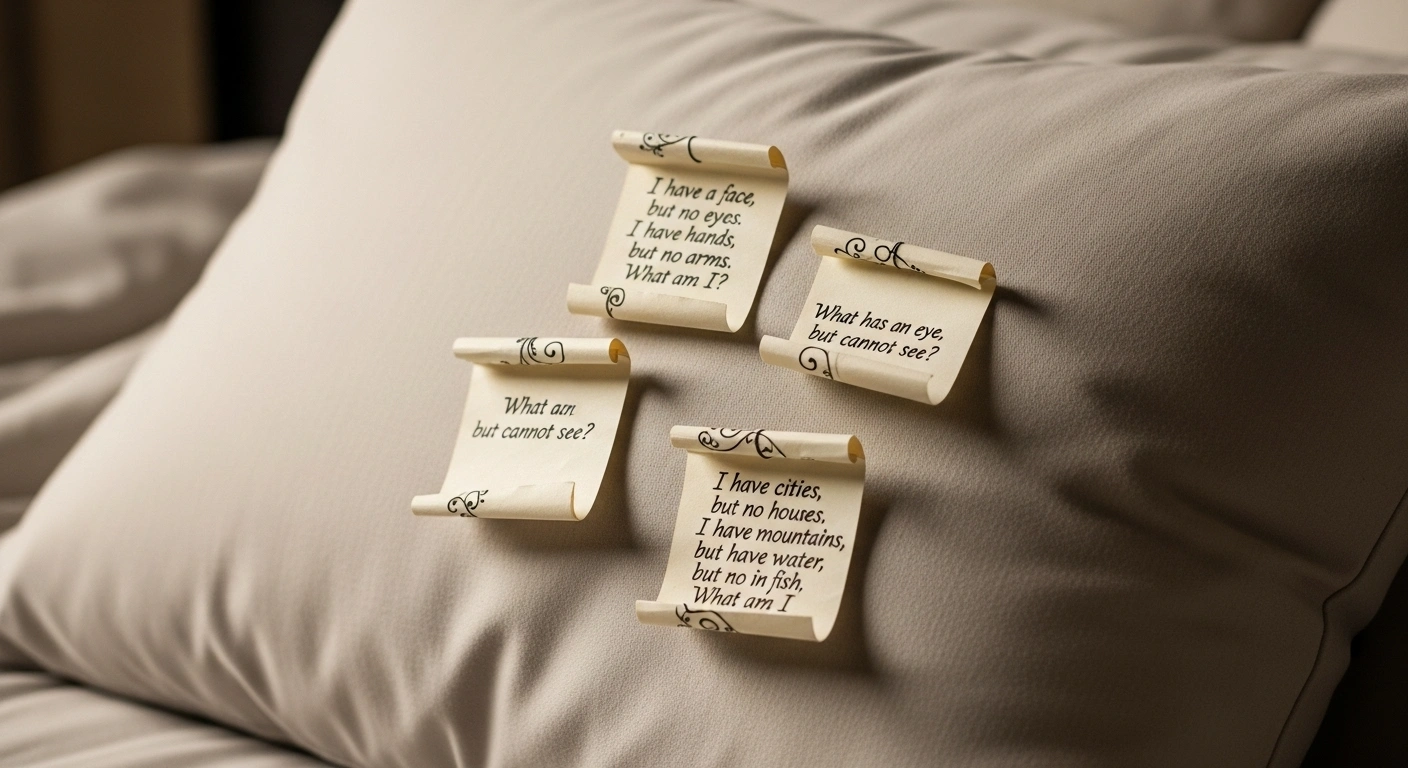 I have a face,
but no eyes.
I have hands,
but no arms.
What am I?
What has an eye,
but cannot see?
What am
but cannot see?
I have cities,
but no houses,
I have mountains,
but have water,
but no in fish,
What am I